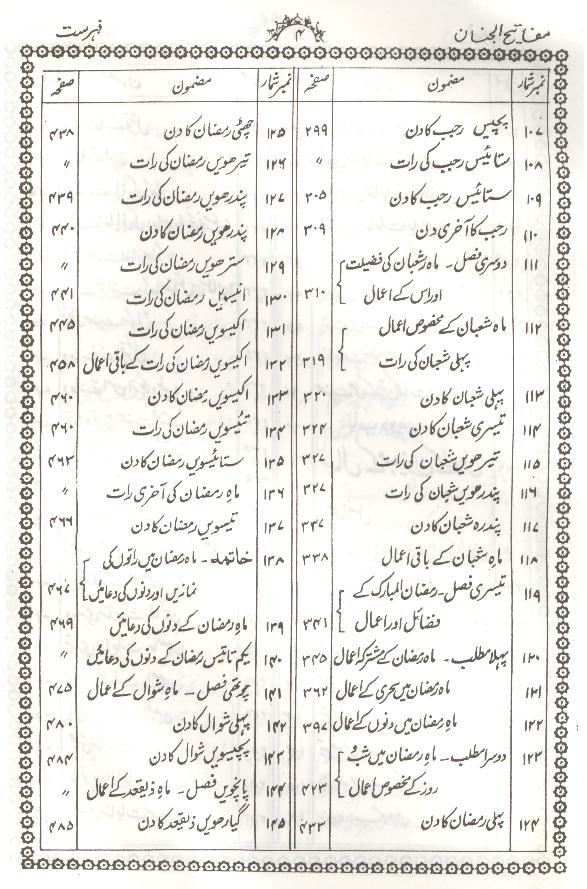 مفاتیح الجنان ۴ فہرست
نمبر شمار مضمون صفحہ
۱۰۷ پچیس رجب کا دن ۲۹۹
۱۰۸ ستائیس رجب کی رات "
۱۰۹ ستائیس رجب کا دن ۳۰۵
۱۱۰ رجب کا آخری دن ۳۰۹
۱۱۱ دوسری فصل۔ ماہ شعبان کی فضیلت
اور اس کے اعمال ۳۱۰
۱۱۲ ماہ شعبان کے مخصوص اعمال
پہلی شعبان کی رات ۳۱۹
۱۱۳ پہلی شعبان کا دن ۳۲۰
۱۱۴ تیسری شعبان کا دن ۳۲۴
۱۱۵ تیرھویں شعبان کی رات ۳۲۷
۱۱۶ پندرھویں شعبان کی رات ۳۲۷
۱۱۷ پندرہ شعبان کا دن ۳۳۷
۱۱۸ ماہ شعبان کے باقی اعمال ۳۳۸
۱۱۹ تیسری فصل۔ رمضان المبارک کے
فضائل اور اعمال ۳۴۱
۱۲۰ پہلا مطلب۔ ماہ رمضان کے مشترکہ اعمال ۳۴۵
۱۲۱ ماہ رمضان میں سحری کے اعمال ۳۶۲
۱۲۲ ماہ رمضان میں دنوں کے اعمال ۳۹۷
۱۲۳ دوسرا مطلب۔ ماہ رمضان میں شب و
روز کے مخصوص اعمال ۴۲۳
۱۲۴ پہلی رمضان کا دن ۴۳۳
نمبر شمار مضمون صفحہ
۱۲۵ چھٹی رمضان کا دن ۴۳۸
۱۲۶ تیرھویں رمضان کی رات "
۱۲۷ پندرھویں رمضان کی رات ۴۳۹
۱۲۸ پندرھویں رمضان کا دن ۴۴۰
۱۲۹ سترھویں رمضان کی رات "
۱۳۰ انیسویں رمضان کی رات ۴۴۱
۱۳۱ اکیسویں رمضان کی رات ۴۴۵
۱۳۲ اکیسویں رمضان کی رات کے باقی اعمال ۴۵۸
۱۳۳ اکیسویں رمضان کا دن ۴۶۰
۱۳۴ تئیسویں رمضان کی رات ۴۶۰
۱۳۵ ستائیسویں رمضان کا دن ۴۶۳
۱۳۶ ماہ رمضان کی آخری رات "
۱۳۷ تیسویں رمضان کا دن ۴۶۶
۱۳۸ خاتمہ۔ ماہ رمضان میں راتوں کی
نمازیں اور دنوں کی دعائیں ۴۶۷
۱۳۹ ماہ رمضان کے دنوں کی دعائیں ۴۶۹
۱۴۰ یکم تا تیس رمضان کے دنوں کی دعائیں "
۱۴۱ چوتھی فصل۔ ماہ شوال کے اعمال ۴۷۵
۱۴۲ پہلی شوال کا دن ۴۸۰
۱۴۳ پچیسویں شوال کا دن ۴۸۴
۱۴۴ پانچویں فصل۔ ماہ ذیقعد کے اعمال "
۱۴۵ گیارھویں ذیقعد کا دن ۴۸۵